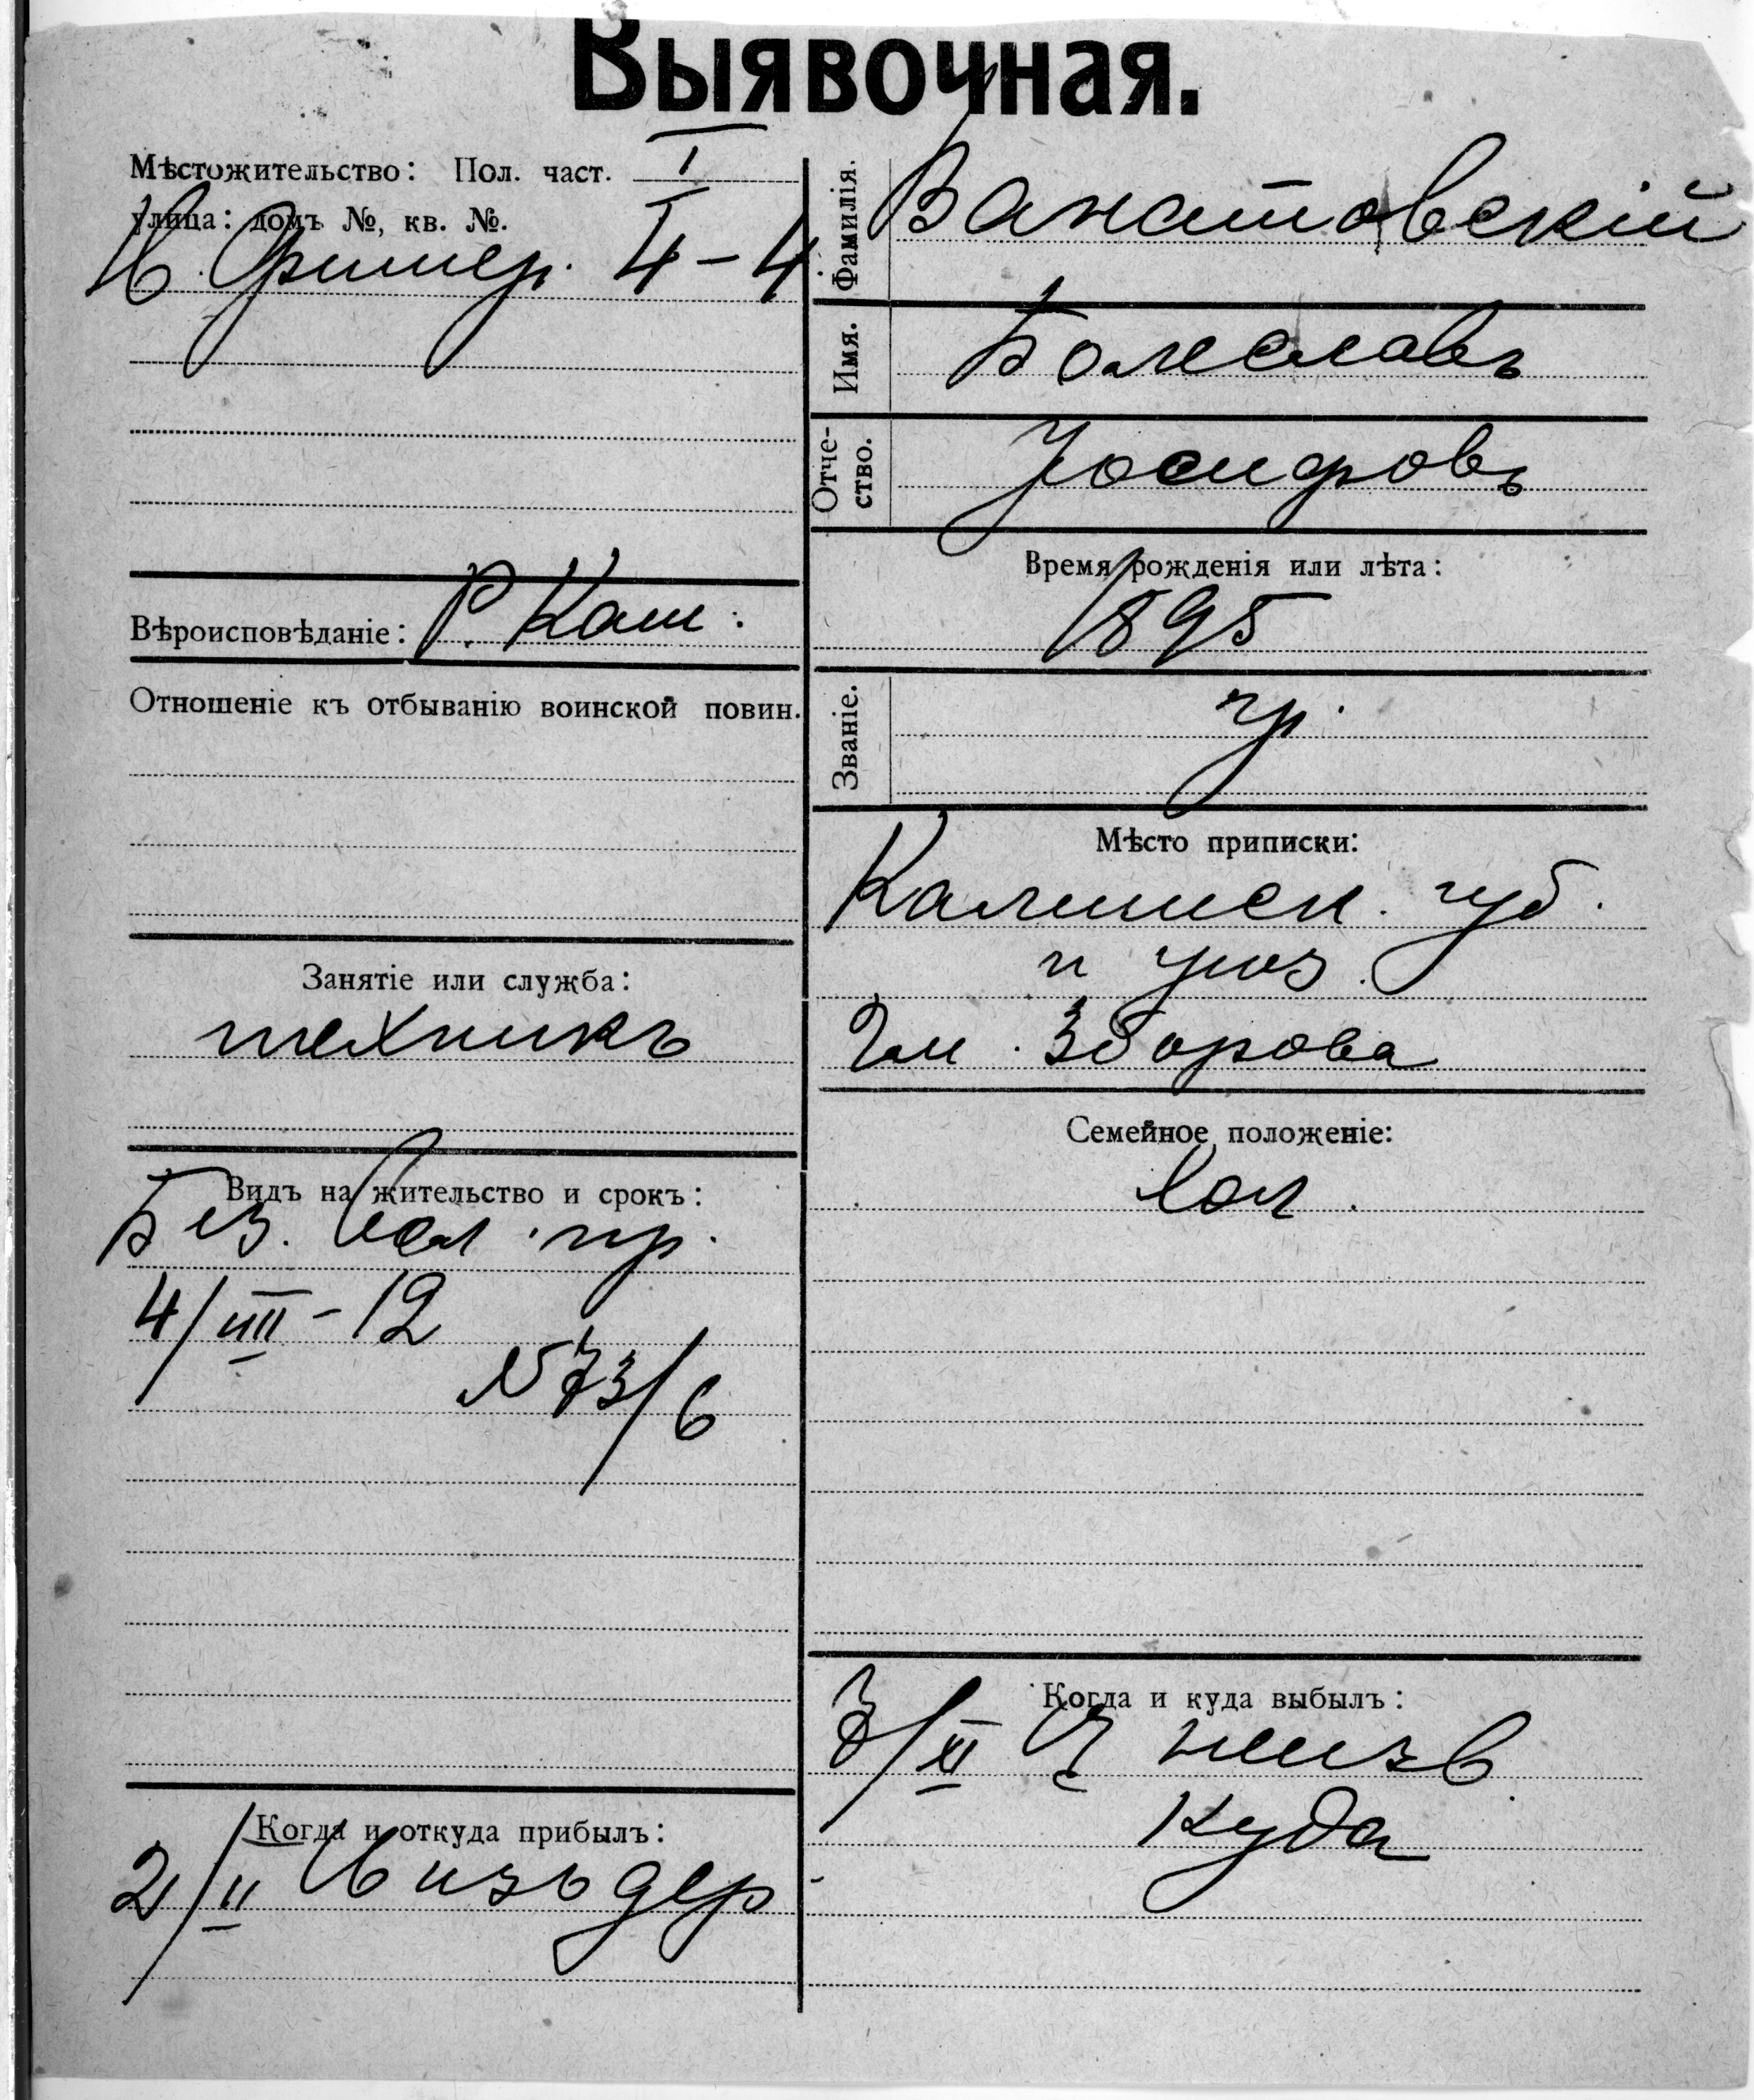 Выявочная.
Мѣстожительство: Пол. част. I
улица: домъ №, кв. №.
4–4
Вѣроисповѣданіе: Р. Кат:
Отношеніе къ отбыванію воинской повин.
Занятіе или служба:
техникъ
Видъ на жительство и срокъ:
Без. пр.
4/III–12
№73/6
Когда и откуда прибылъ:
2/II изъ дер
Фамилія. Ванатовскій
Имя. Болеславъ
Отче-
ство. Іосифовъ
Время рожденія или лѣта:
1895
Званіе. гр.
Мѣсто приписки:
Калишск. губ.
и уѣз.
Гм. Зборова
Семейное положеніе:
хол.
Когда и куда выбылъ:
неизв
куда